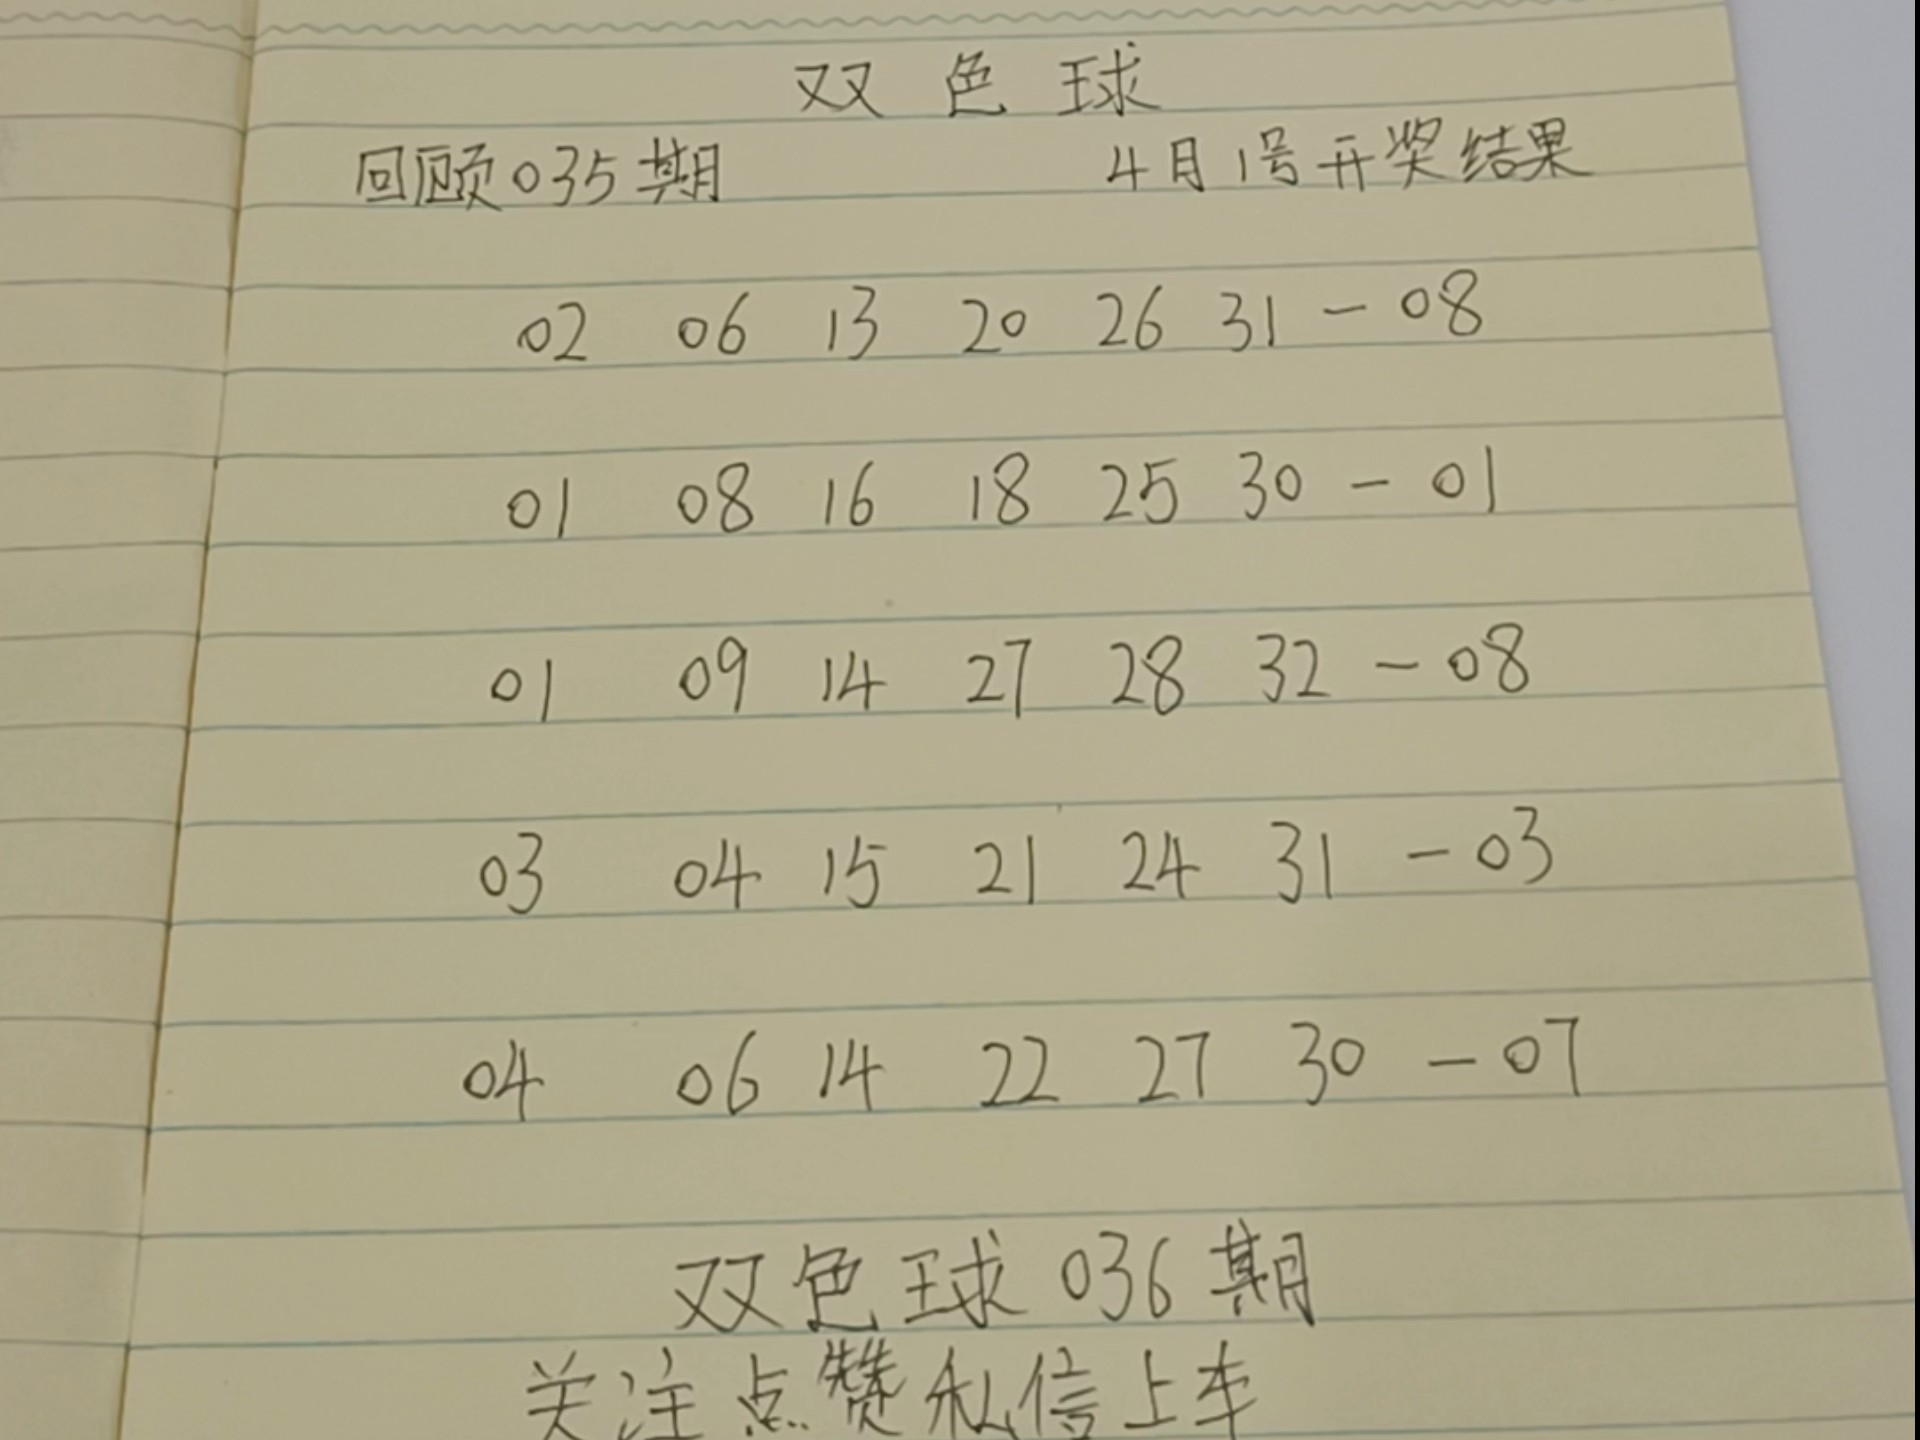 双色球
回顾035期 4月1号开奖结果
02 06 13 20 26 31 - 08
01 08 16 18 25 30 - 01
01 09 14 27 28 32 - 08
03 04 15 21 24 31 - 03
04 06 14 22 27 30 - 07
双色球036期
关注点赞私信上车